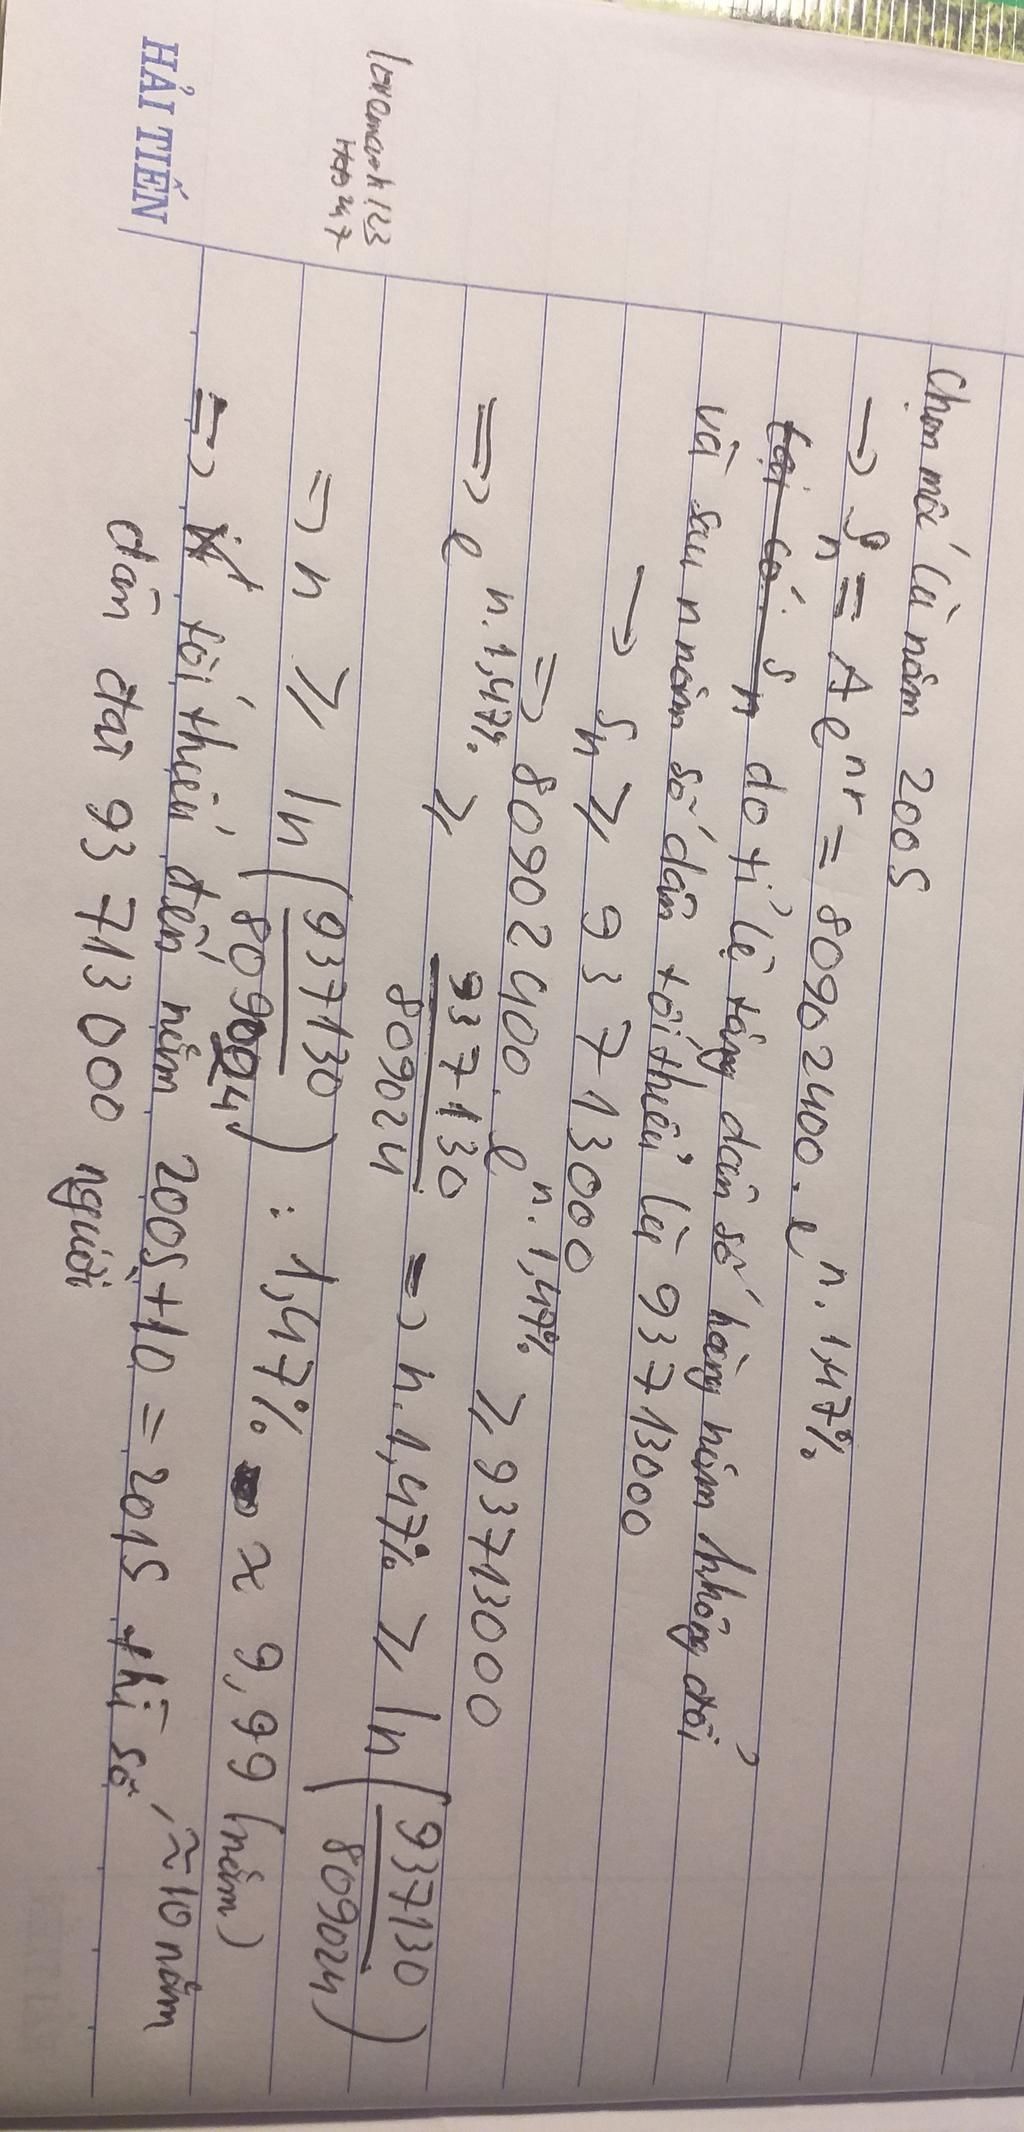 HẢI TIẾN
lazamanh123
Hoa247
Chọn mốc là năm 2005
→ Sn = A e^nr = 80902400 . e^n . 1,47%
tại có Sn do tỉ lệ tăng dân số hàng năm không đổi
và sau n năm số dân tối thiểu là 93713000
→ Sn ⩾ 93713000
=> 80902400 . e^n . 1,47% ⩾ 93713000
=> e^n . 1,47% ⩾ 937130/809024 => n . 1,47% ⩾ ln(937130/809024)
=> n ⩾ ln(937130/809024) : 1,47% ≈ 9,99 (năm), ≈ 10 năm
=> tối thiểu đến năm 2005 + 10 = 2015 thì số
dân đạt 93 713 000 người